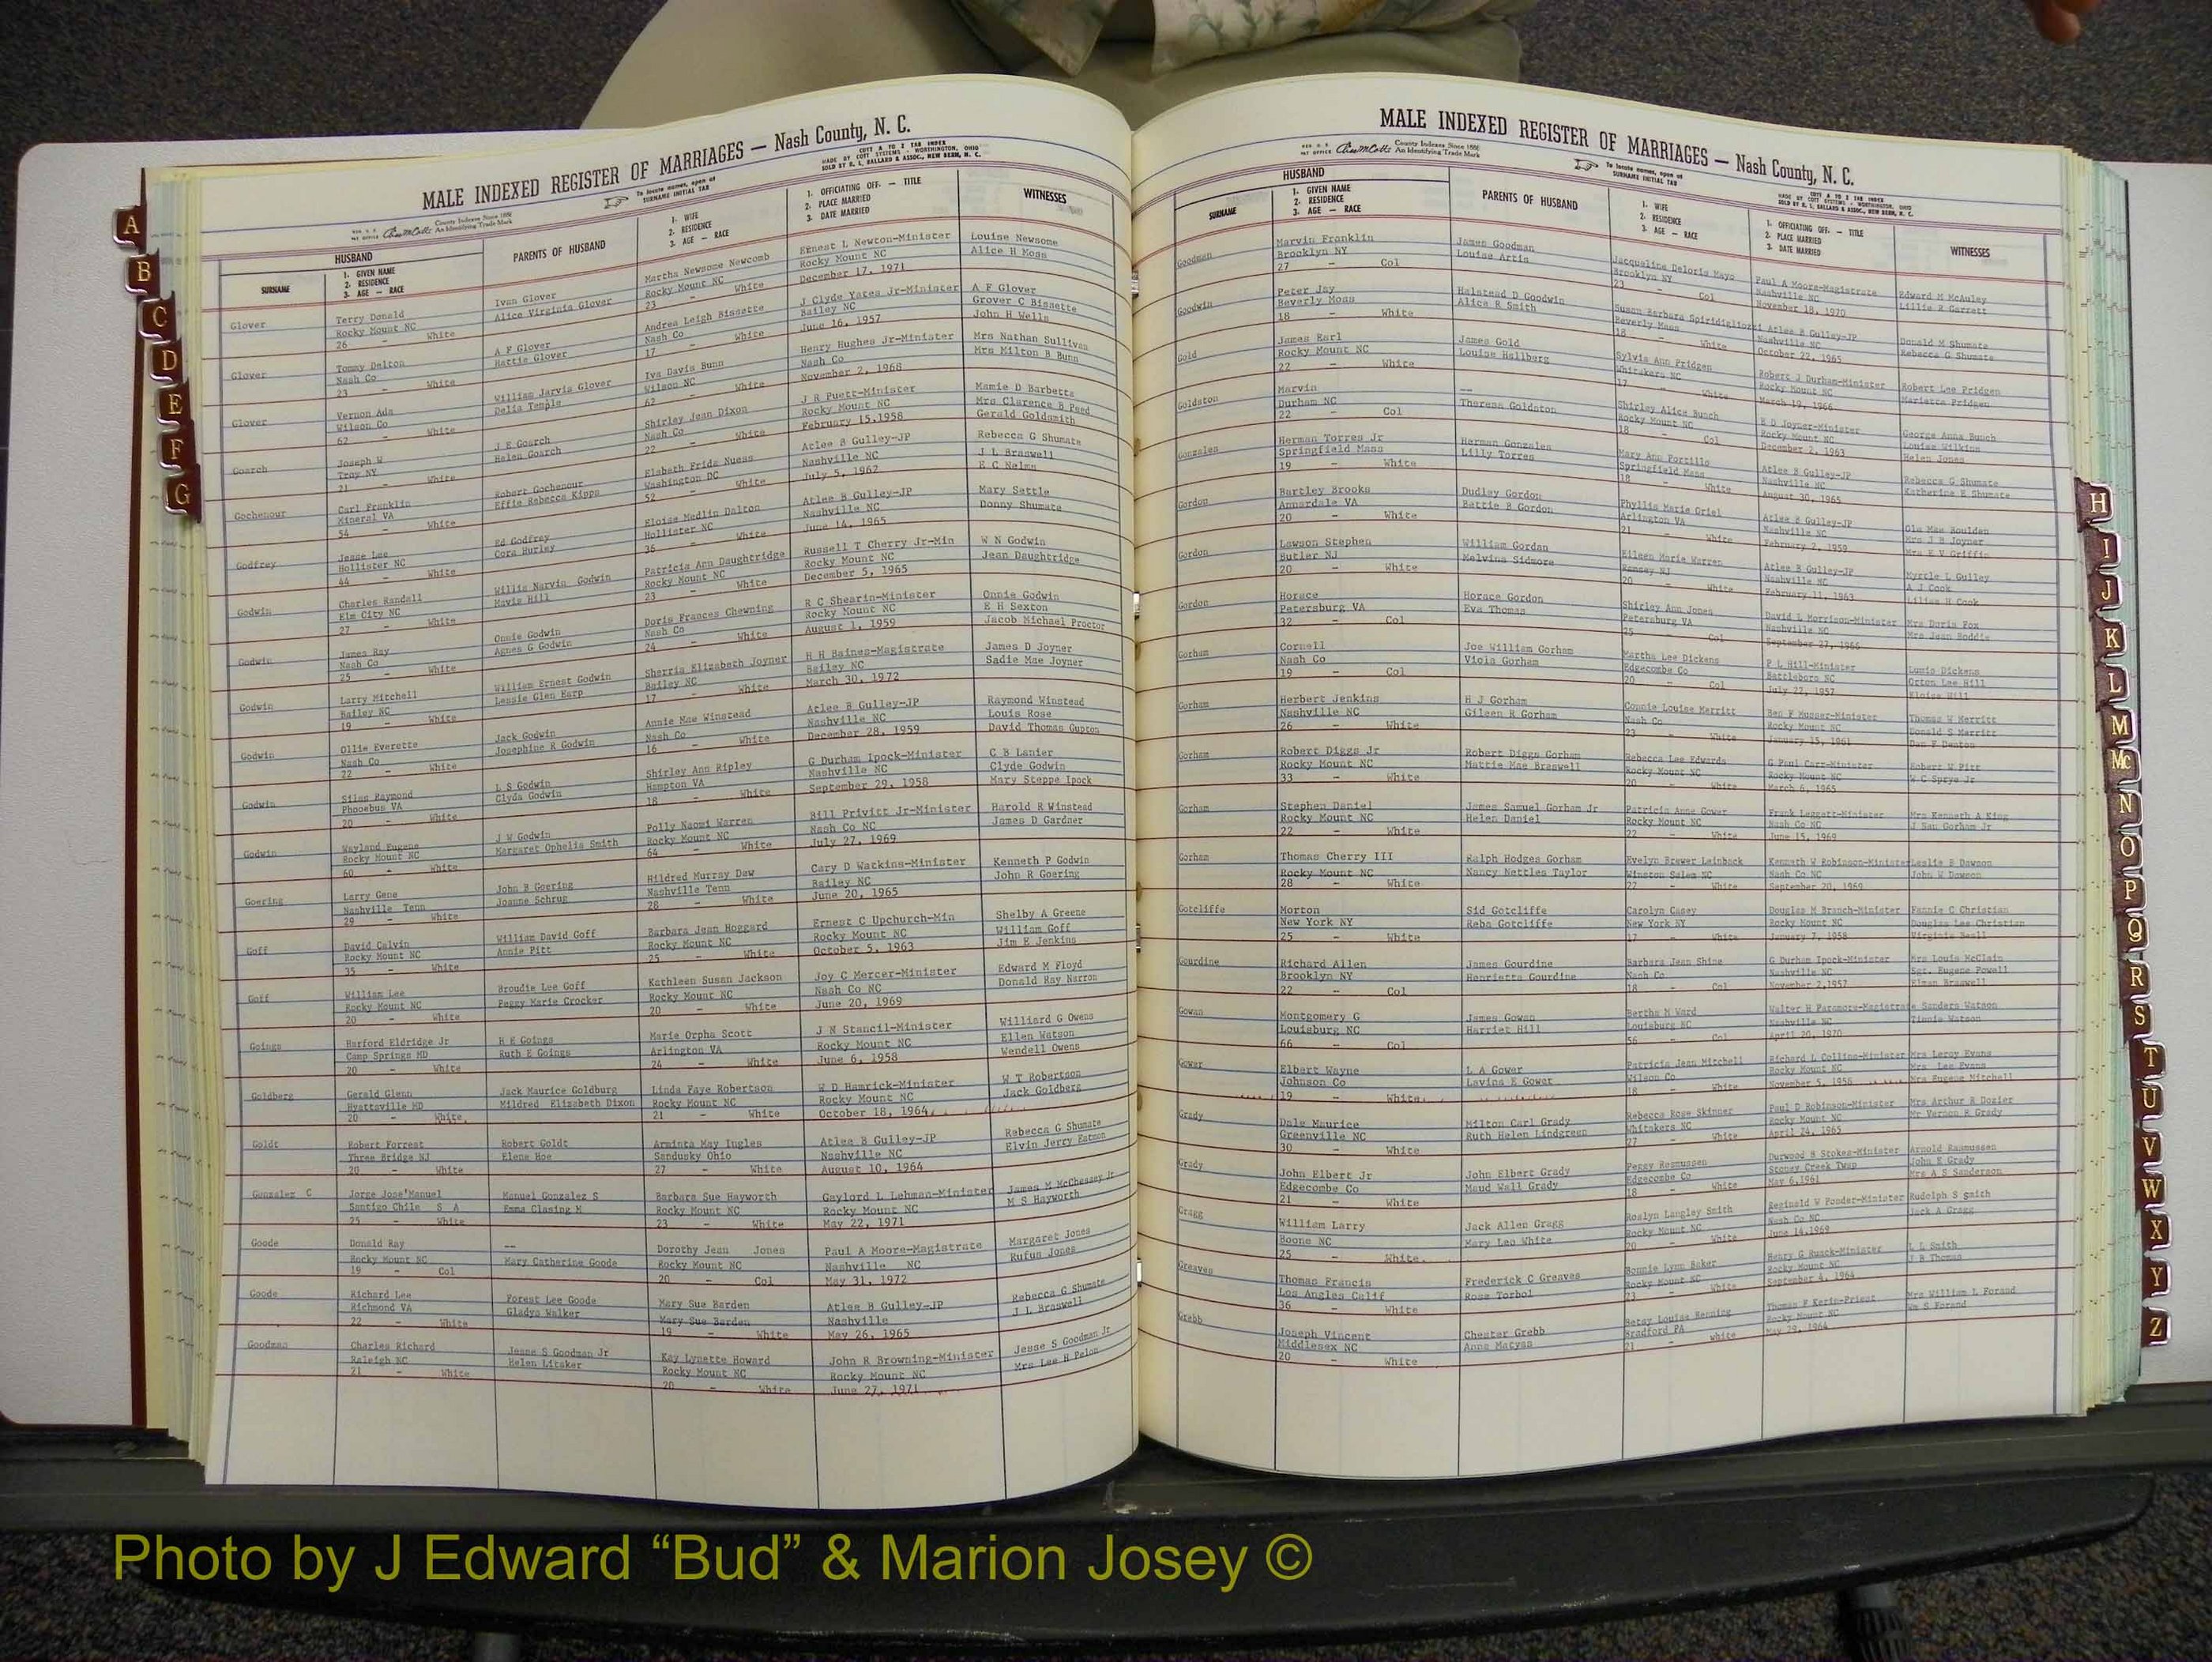 MALE INDEXED REGISTER OF MARRIAGES — Nash County, N. C.
County Indexes Since 1888
An Identifying Trade Mark
To locate names, open at
SURNAME INITIAL TAB
COTT A TO Z TAB INDEX
MADE BY COTT SYSTEMS - WORTHINGTON, OHIO
SOLD BY R. L. BALLARD & ASSOC., NEW BERN, N. C.
HUSBAND
SURNAME
1. GIVEN NAME
2. RESIDENCE
3. AGE — RACE
PARENTS OF HUSBAND
1. WIFE
2. RESIDENCE
3. AGE — RACE
1. OFFICIATING OFF. — TITLE
2. PLACE MARRIED
3. DATE MARRIED
WITNESSES
Glover Terry Donald Ivan Glover Martha Newsome Newcomb Ernest L Newton-Minister Louise Newsome
Rocky Mount NC Alice Virginia Glover Rocky Mount NC Rocky Mount NC Alice H Moss
26 - White 23 - White December 17, 1971
Glover Tommy Dalton A F Glover Andrea Leigh Bissette J Clyde Yates Jr-Minister A F Glover
Nash Co Hattie Glover Nash Co Bailey NC Grover C Bissette
23 - White 17 - White June 16, 1957 John H Wells
Glover Vernon Ada William Jarvis Glover Iva Davis Bunn Henry Hughes Jr-Minister Mrs Nathan Sullivan
Wilson Co Delia Temple Wilson NC Nash Co Mrs Milton B Bunn
62 - White 62 - White November 2, 1968
Goarch Joseph W J E Goarch Shirley Jean Dixon J R Puett-Minister Mamie D Barbetta
Troy NY Helen Goarch Nash Co Rocky Mount NC Mrs Clarence B Peed
21 - White 22 - White February 15,1958 Gerald Goldsmith
Gochenour Carl Franklin Robert Gochenour Elsbeth Frida Nuess Atlee B Gulley-JP Rebecca G Shumate
Mineral VA Effie Rebecca Kipps Washington DC Nashville NC J L Braswell
54 - White 52 - White July 5, 1962 E C Nelms
Godfrey Jesse Lee Ed Godfrey Eloise Medlin Dalton Atlee B Gulley-JP Mary Settle
Hollister NC Cora Hurley Hollister NC Nashville NC Donny Shumate
44 - White 36 - White June 14, 1965
Godwin Charles Randall Willis Narvin Godwin Patricia Ann Daughtridge Russell T Cherry Jr-Min W N Godwin
Elm City NC Mavis Hill Rocky Mount NC Rocky Mount NC Jean Daughtridge
27 - White 23 - White December 5, 1965
Godwin James Ray Onnie Godwin Doris Frances Chewning R C Shearin-Minister Onnie Godwin
Nash Co Agnes G Godwin Nash Co Rocky Mount NC E H Sexton
25 - White 24 - White August 1, 1959 Jacob Michael Proctor
Godwin Larry Mitchell William Ernest Godwin Sherria Elizabeth Joyner H H Baines-Magistrate James D Joyner
Bailey NC Lessie Glen Earp Bailey NC Bailey NC Sadie Mae Joyner
19 - White 17 - White March 30, 1972
Godwin Ollie Everette Jack Godwin Annie Mae Winstead Atlee B Gulley-JP Raymond Winstead
Nash Co Josephine R Godwin Nash Co Nashville NC Louis Rose
22 - White 16 - White December 28, 1959 David Thomas Gupton
Godwin Silas Raymond L S Godwin Shirley Ann Ripley G Durham Ipock-Minister C B Lanier
Phoebus VA Clyda Godwin Hampton VA Nashville NC Clyde Godwin
20 - White 18 - White September 29, 1958 Mary Steppe Ipock
Godwin Wayland Eugene J W Godwin Polly Naomi Warren Bill Privitt Jr-Minister Harold R Winstead
Rocky Mount NC Margaret Ophelia Smith Rocky Mount NC Nash Co NC James D Gardner
60 - White 64 - White July 27, 1969
Goering Larry Gene John B Goering Mildred Murray Dew Cary D Watkins-Minister Kenneth P Godwin
Nashville Tenn Joanne Schrug Nashville Tenn Bailey NC John R Goering
29 - White 28 - White June 20, 1965
Goff David Calvin William David Goff Barbara Jean Hoggard Ernest C Upchurch-Min Shelby A Greene
Rocky Mount NC Annie Pitt Rocky Mount NC Rocky Mount NC William Goff
35 - White 25 - White October 5, 1963 Jim E Jenkins
Goff William Lee Broudie Lee Goff Kathleen Susan Jackson Joy C Mercer-Minister Edward M Floyd
Rocky Mount NC Peggy Marie Crocker Rocky Mount NC Nash Co NC Donald Ray Narron
20 - White 20 - White June 20, 1969
Goings Harford Eldridge Jr H E Goings Marie Orpha Scott J N Stancil-Minister Williard G Owens
Camp Springs MD Ruth E Goings Arlington VA Rocky Mount NC Ellen Watson
20 - White 24 - White June 6, 1958 Wendell Owens
Goldberg Gerald Glenn Jack Maurice Goldburg Linda Faye Robertson W D Hamrick-Minister W T Robertson
Hyattsville MD Mildred Elizabeth Dixon Rocky Mount NC Rocky Mount NC Jack Goldberg
20 - White 21 - White October 18, 1964
Goldt Robert Forrest Robert Goldt Arminta May Ingles Atlee B Gulley-JP Rebecca G Shumate
Three Bridge NJ Elene Hoe Sandusky Ohio Nashville NC Elvin Jerry Eatmon
20 - White 27 - White August 10, 1964
Gonzalez C Jorge Jose'Manuel Manuel Gonzalez S Barbara Sue Hayworth Gaylord L Lehman-Minister James M McChessey Jr
Santigo Chile S A Emma Clasing M Rocky Mount NC Rocky Mount NC M S Hayworth
25 - White 23 - White May 22, 1971
Goode Donald Ray -- Dorothy Jean Jones Paul A Moore-Magistrate Margaret Jones
Rocky Mount NC Mary Catherine Goode Rocky Mount NC Nashville NC Rufus Jones
19 - Col 20 - Col May 31, 1972
Goode Richard Lee Forest Lee Goode Mary Sue Barden Atlee B Gulley-JP Rebecca G Shumate
Richmond VA Gladys Walker Mary Sue Barden Nashville J L Braswell
22 - White 19 - White May 26, 1965
Goodman Charles Richard Jesse S Goodman Jr Kay Lynette Howard John R Browning-Minister Jesse S Goodman Jr
Raleigh NC Helen Litaker Rocky Mount NC Rocky Mount NC Mrs Lee H Pelon
21 - White 20 - White June 27, 1971
MALE INDEXED REGISTER OF MARRIAGES — Nash County, N. C.
County Indexes Since 1888
An Identifying Trade Mark
To locate names, open at
SURNAME INITIAL TAB
COTT A TO Z TAB INDEX
MADE BY COTT SYSTEMS - WORTHINGTON, OHIO
SOLD BY R. L. BALLARD & ASSOC., NEW BERN, N. C.
HUSBAND
SURNAME
1. GIVEN NAME
2. RESIDENCE
3. AGE — RACE
PARENTS OF HUSBAND
1. WIFE
2. RESIDENCE
3. AGE — RACE
1. OFFICIATING OFF. — TITLE
2. PLACE MARRIED
3. DATE MARRIED
WITNESSES
Goodman Marvin Franklin James Goodman Jacqueline Deloris Mayo Paul A Moore-Magistrate Edward M McAuley
Brooklyn NY Louise Artis Brooklyn NY Nashville NC Lillie R Garrett
27 - Col 23 - Col November 18, 1970
Goodwin Peter Jay Halstead D Goodwin Susan Barbara Spiridigliozzi Atlee B Gulley-JP Donald M Shumate
Beverly Mass Alice R Smith Beverly Mass Nashville NC Rebecca G Shumate
18 - White 18 - White October 22, 1965
Gold James Earl James Gold Sylvia Ann Pridgen Robert J Durham-Minister Robert Lee Pridgen
Rocky Mount NC Louise Hallberg Whitakers NC Rocky Mount NC Marietta Pridgen
22 - White 17 - White March 19, 1966
Goldston Marvin -- Shirley Alice Bunch E D Joyner-Minister George Anna Bunch
Durham NC Theresa Goldston Rocky Mount NC Rocky Mount NC Louis Wilkins
22 - Col 18 - Col December 2, 1963 Helen Jones
Gonzales Herman Torres Jr Herman Gonzales Mary Ann Portillo Atlee B Gulley-JP Rebecca G Shumate
Springfield Mass Lilly Torres Springfield Mass Nashville NC Katherine E Shumate
19 - White 18 - White August 30, 1965
Gordon Bartley Brooks Dudley Gordon Phyllis Marie Oriel Atlee B Gulley-JP Ola Mae Boulden
Annardale VA Bettie B Gordon Arlington VA Nashville NC Mrs J H Joyner
20 - White 21 - White February 2, 1959 Mrs E V Griffin
Gordon Lawson Stephen William Gordan Eileen Marie Warren Atlee B Gulley-JP Myrtle L Gulley
Butler NJ Melvina Sidmore Ramsey NJ Nashville NC A J Cook
20 - White 20 - White February 11, 1963 Lilian H Cook
Gordon Horace Horace Gordon Shirley Ann Jones David L Morrison-Minister Mrs Doris Fox
Petersburg VA Eva Thomas Petersburg VA Nashville NC Mrs Jean Boddie
32 - Col 25 - Col September 27, 1966
Gorham Cornell Joe William Gorham Martha Lee Dickens P L Hill-Minister Lumis Dickens
Nash Co Viola Gorham Edgecombe Co Battleboro NC Orton Lee Hill
19 - Col 20 - Col July 22, 1957 Eloise Hill
Gorham Herbert Jenkins H J Gorham Connie Louise Merritt Ben F Musser-Minister Thomas W Merritt
Nashville NC Gileen R Gorham Nash Co Rocky Mount NC Donald S Merritt
26 - White 23 - White January 15, 1961 Dan F Denton
Gorham Robert Diggs Jr Robert Diggs Gorham Rebecca Lee Edwards G Paul Carr-Minister Robert W Pitt
Rocky Mount NC Mattie Mae Braswell Rocky Mount NC Rocky Mount NC W C Sprye Jr
33 - White 20 - White March 6, 1965
Gorham Stephen Daniel James Samuel Gorham Jr Patricia Anne Gower Frank Leggett-Minister Mrs Kenneth A King
Rocky Mount NC Helen Daniel Rocky Mount NC Nash Co NC J San Gorham Jr
22 - White 22 - White June 15, 1969
Gorham Thomas Cherry III Ralph Hodges Gorham Evelyn Brewer Leinback Kenneth W Robinson-Minister Leslie B Dawson
Rocky Mount NC Nancy Nettles Taylor Winston Salem NC Nash Co NC John W Dawson
28 - White 27 - White September 20, 1969
Gotcliffe Morton Sid Gotcliffe Carolyn Casey Douglas M Branch-Minister Fannie C Christian
New York NY Reba Gotcliffe New York NY Rocky Mount NC Douglas Lee Christian
25 - White 17 - White January 7, 1958 Virginia Beall
Gourdine Richard Allen James Gourdine Barbara Jean Shine G Durham Ipock-Minister Mrs Louis McClain
Brooklyn NY Henrietta Gourdine Nash Co Nashville NC Sgt. Eugene Powell
22 - Col 18 - Col November 2,1957 Elman Braswell
Gowan Montgomery G James Gowan Bertha M Ward Walter H Paramore-Magistrate Sanders Watson
Louisburg NC Harriet Hill Louisburg NC Nashville NC Tinnie Watson
66 - Col 56 - Col April 20, 1970
Gower Elbert Wayne L A Gower Patricia Jean Mitchell Richard L Collins-Minister Mrs Leroy Evans
Johnson Co Lavina E Gower Wilson Co Rocky Mount NC Mrs Lee Evans
19 - White 18 - White November 5, 1958 Mrs Eugene Mitchell
Grady Dale Maurice Milton Carl Grady Rebecca Rose Skinner Paul D Robinson-Minister Mrs Arthur R Dozier
Greenville NC Ruth Helen Lindgreen Whitakers NC Rocky Mount NC Mr Vernon R Grady
30 - White 27 - White April 24, 1965
Grady John Elbert Jr John Elbert Grady Peggy Rasmussen Durwood B Stokes-Minister Arnold Rasmussen
Edgecombe Co Maud Wall Grady Edgecombe Co Stoney Creek Twsp John E Grady
21 - White 18 - White May 6,1961 Mrs A S Sanderson
Gragg William Larry Jack Allen Gragg Roslyn Langley Smith Reginald W Ponder-Minister Rudolph S Smith
Boone NC Mary Leo White Rocky Mount NC Nash Co NC Jack A Gragg
25 - White 20 - White June 14,1969
Greaves Thomas Francis Frederick C Greaves Bonnie Lynn Baker Henry G Ruark-Minister L L Smith
Los Angles Calif Rose Torbol Rocky Mount NC Rocky Mount NC J B Thomas
36 - White 23 - White September 4, 1964
Grebb Joseph Vincent Chester Grebb Betsy Louise Henning Thomas F Kerin-Priest Mrs William L Forand
Middlesex NC Anna Matyas Bradford PA Rocky Mount NC Wm S Forand
20 - White 21 - white May 29, 1964
A
B
C
D
E
F
G
H
I
J
K
L
M
Mc
N
O
P
Q
R
S
T
U
V
W
X
Y
Z
Photo by J Edward “Bud” & Marion Josey ©